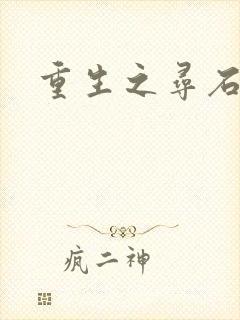 重生之尋石
疯二神